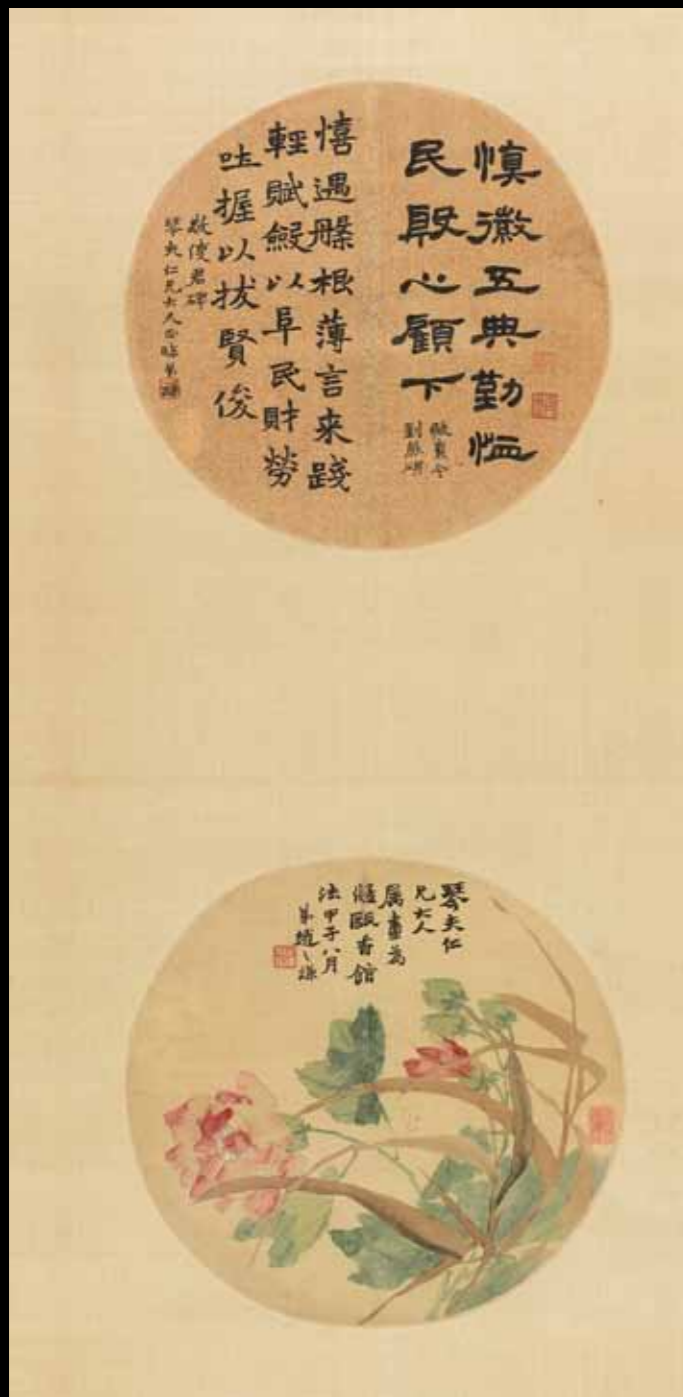 慎徽五典勤恤
民殷心顧下
劉熊碑
憘遇槃根薄言来踐
輕賦斂以阜民財勞
吐握以拔賢俊
敬使君碑
琴夫仁兄大人正臨弟謙
琴夫仁
兄大人
属畫為
甌香館
法甲子八月
弟趙之謙